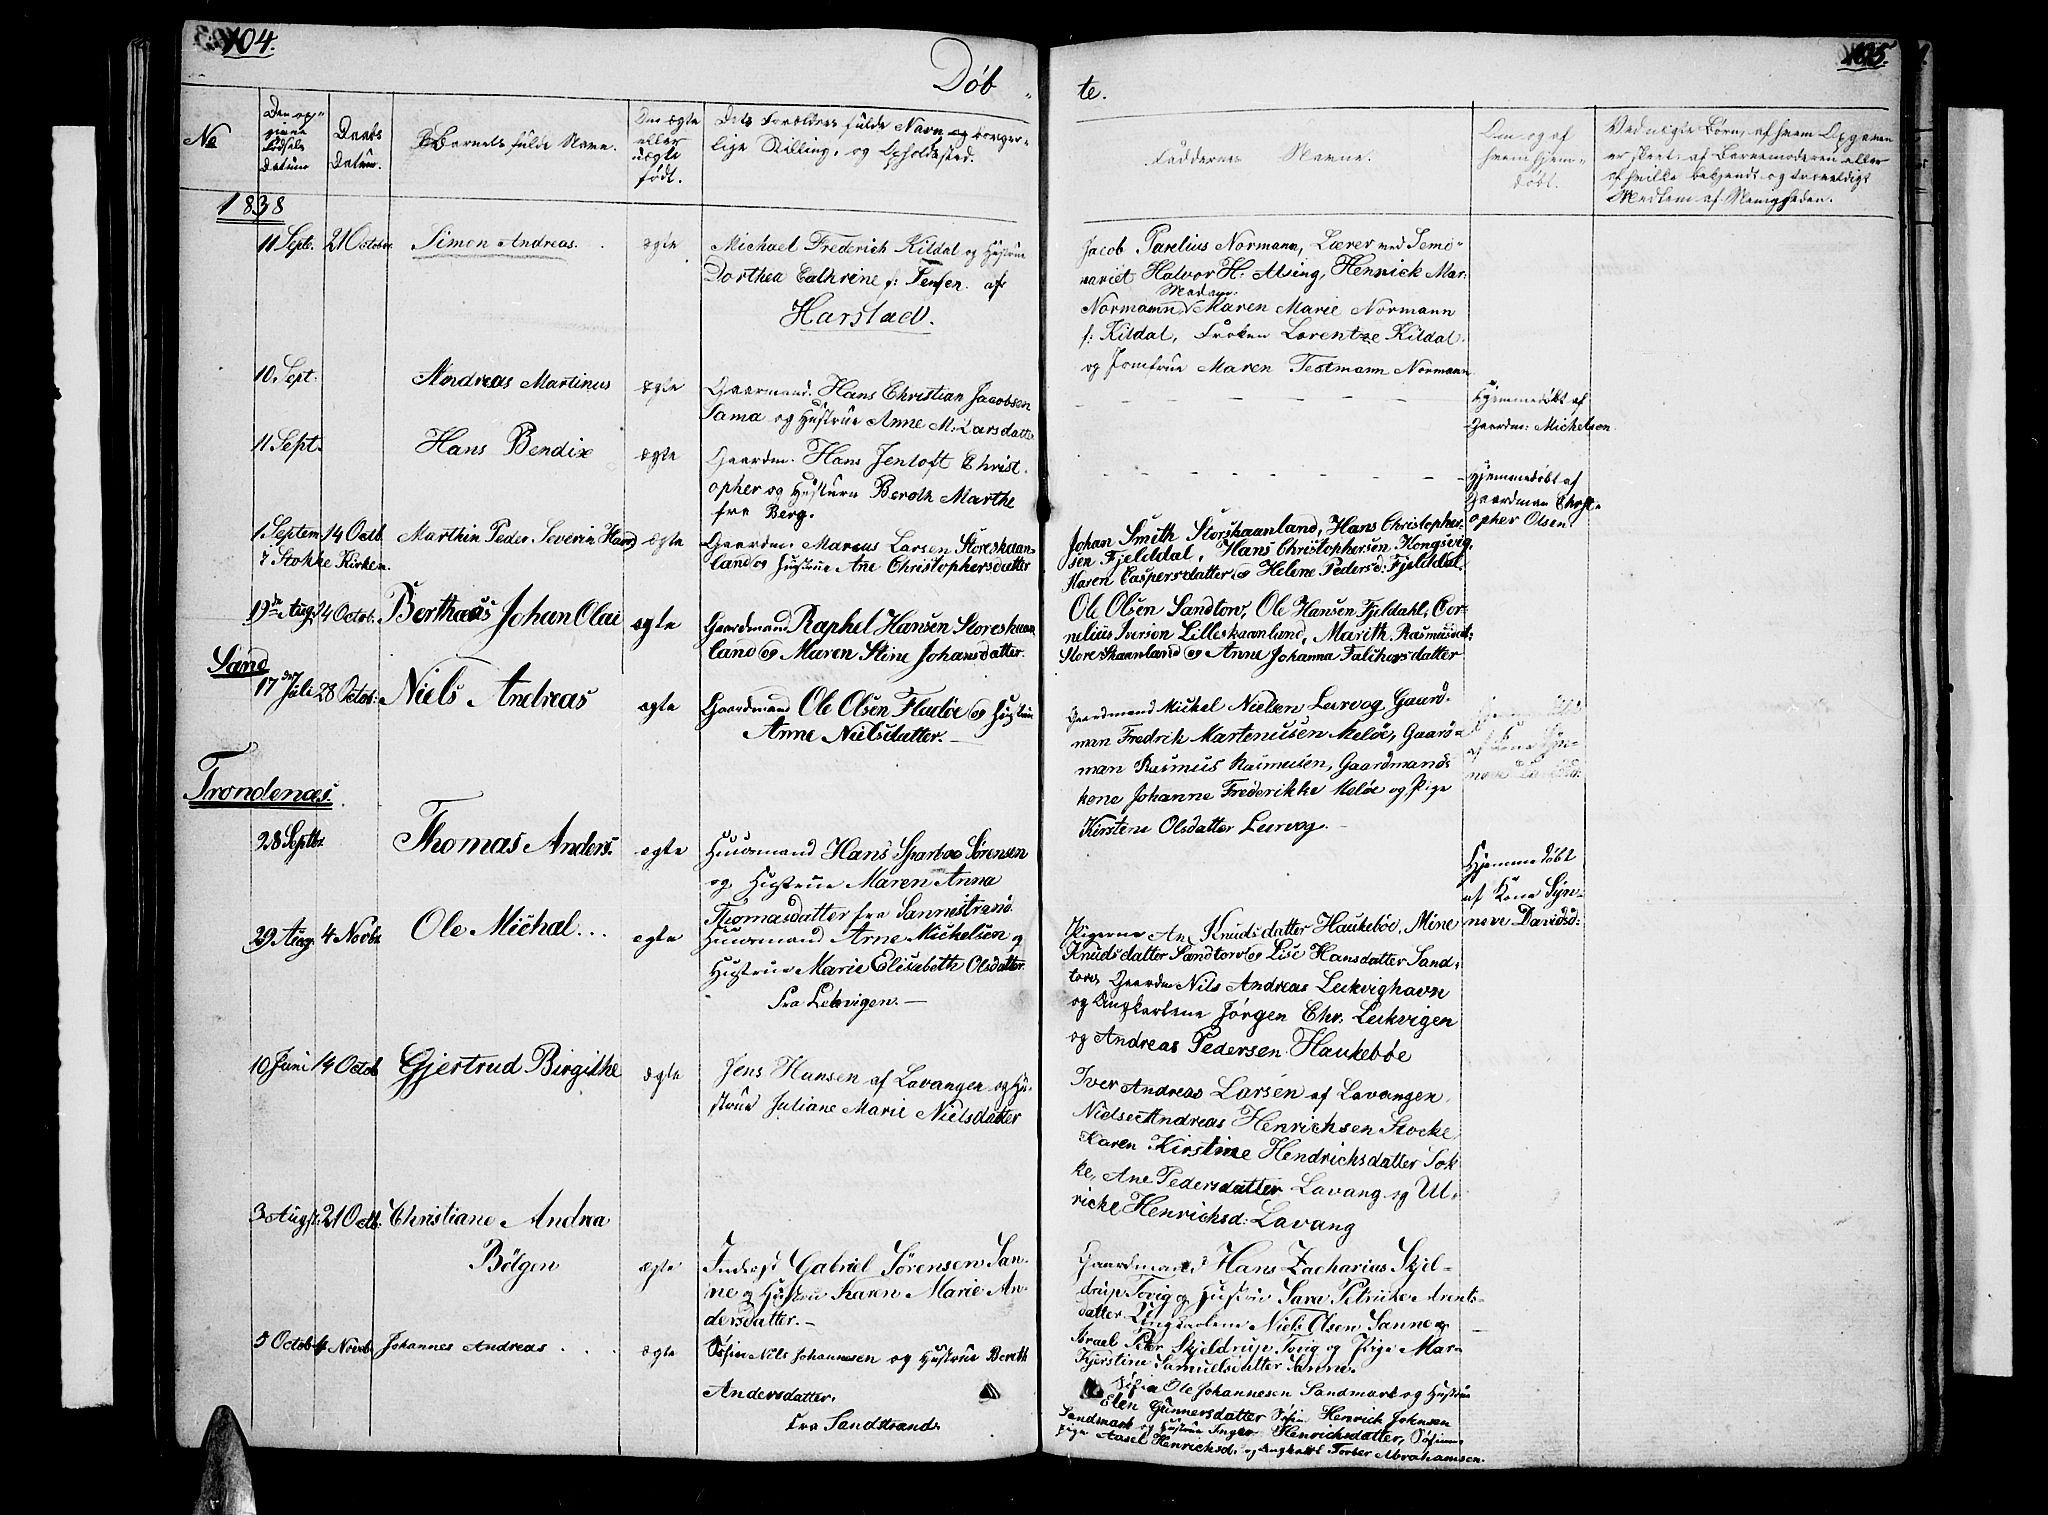 104.
105.
Døb
te.
No
Den op-
givne
Fødsels
Datum
Daabs
Datum.
Barnets fulde Navn.
Om ægte
eller
uægte
født.
Dets Forældres fulde Navn og borger-
lige Stilling, og Opholdssted.
Faddernes Navne.
Om og af
hvem hjem-
døbt.
Ved uægte Børn, af hvem Opgaven
er skeet: af Barnemoderen eller
af hvilke bekjendt og troværdigt
Medlem af Menigheden.
1838
11 Sept. 21 October Simon Andreas. ægte
Michael Frederich Kildal og Hustrue
Dorthea Cathrine f: Jensen. af
Harstad.
Jacob Parelius Normann, Lærer ved Semi-
nariet Halvor H: Alsing, Henrick Mar:
Madam
Normann, Maren Marie Normann
f: Kildal, Frøken Lorentze Kildal
og Jomfrue Maren Testmann Normann
10. Sept. Andreas Martinus ægte
Gaarmand. Hans Christian Jacobsen
Sama og Hustrue Anne M: Larsdatter
Hjemmedøbt af
Gaardm: Michelsen
11 Sept. Hans Bendix ægte
Gaardm. Hans Jentoft Christ
opher og Hustrue Berath Marthe
fra Berg.
hjemmedøbt af
Gaardman Christ-
opher Olsen
1. Septem 14 Octb. Marthin Peder Severin Hans ægte
i Stokke Kirken.
Gaardm. Marcus Larsen Storeskaan-
land og Hustrue Ane Christophersdatter
Johan Smith Storskaanland, Hans Christopher-
sen Fjelddal, Hans Christophersen Kongsvig,
Maren Caspersdatter og Helene Peders d: Fjelddal.
19de Aug. 14 Octob. Berthæus Johan Olai ægte
Gaardmand Raphel Hansen Storeskaan
land og Maren Stine Johansdatter.
Ole Olsen Sandtorv, Ole Hansen Fjeldahl, Cor-
nelius Iverson Lilleskaanland, Marith Rasmusdat:
Store Skaanland og Anne Johanna Falchorsdatter
Sand
17 den Juli 28 Octob: Niels Andreas ægte
Gaardmand Ole Olsen Fladøe og Hustrue
Anne Nielsdatter. —
Gaardmand Mickel Nielsen Leirvog Gaard-
man Fredrik Martenussen Meløe, Gaard-
man Rasmus Rasmusen, Gaardmands
kone Johanne Frederikke Meløe og Pige
Kirstene Olsdatter Leirvog. —
Trondenæs.
28 Septbr. Thomas Anders. ægte
Huusmand Hans Sparboe Sørensen
og Hustrue Maren Anna
Thomasdatter fra Sannestrand.
Hjemmedøbt
af Kone Syn-
neve Davidsd:
29 Aug. 4 Novbr Ole Michal... ægte
Huusmand Arne Mickelsen og
Hustrue Marie Elisabeth Olsdatter
Fra Lekvigen. —
Pigerne Ane Knudsdatter Haukebøe, Mine
Knudsdatter Sandtorv og Lise Hansdatter Sand-
torv, Gaardm Nils Andreas Leikvighavn
og Ungkarlene Jørgen Chr. Leikvigen
og Andreas Pedersen Haukebøe
10 Juni 14 Octob Gjertrud Birgithe ægte
Jens Hansen af Lavangen og Hu-
strue Juliane Marie Nielsdatter
Iver Andreas Larsen af Lavangen,
Andreas Henrichsen Stocke
Karen Kirstine Hendrichsdatter Sok
ke, Ane Pedersdatter Lavang og Ul-
ricke Henrichsd: Lavang
3 Augst. 21 Octb. Christiane Andrea
Bølgen ægte
Gabriel Sørensen San-
ne og Hustrue Karen Marie An-
dersdatter. —
Gaardmand Hans Zacharias Skjel-
drup Tovig og Hustrue Sara Petricke Arents-
datter Ungkarlene Niels Olsen Sanne og
Israel Peter Skjeldrup Tovig og Pige Mar-
Kjerstine Samuelsdatter Sanne.
5 Octob 4 Novb. Johannes Andreas ægte
Nils Johannesen og Hustrue Bereth
Andersdatter.
Fra Sandstrand.
Ole Johannesen Sandmark og Hustrue
Elen Gunnersdatter Henrich Johnsen
Sandmark og Hustrue Inger Henrichsdatter,
Pige Aasel Henrichsd. og Ungkarl Torber Abrahamsen.